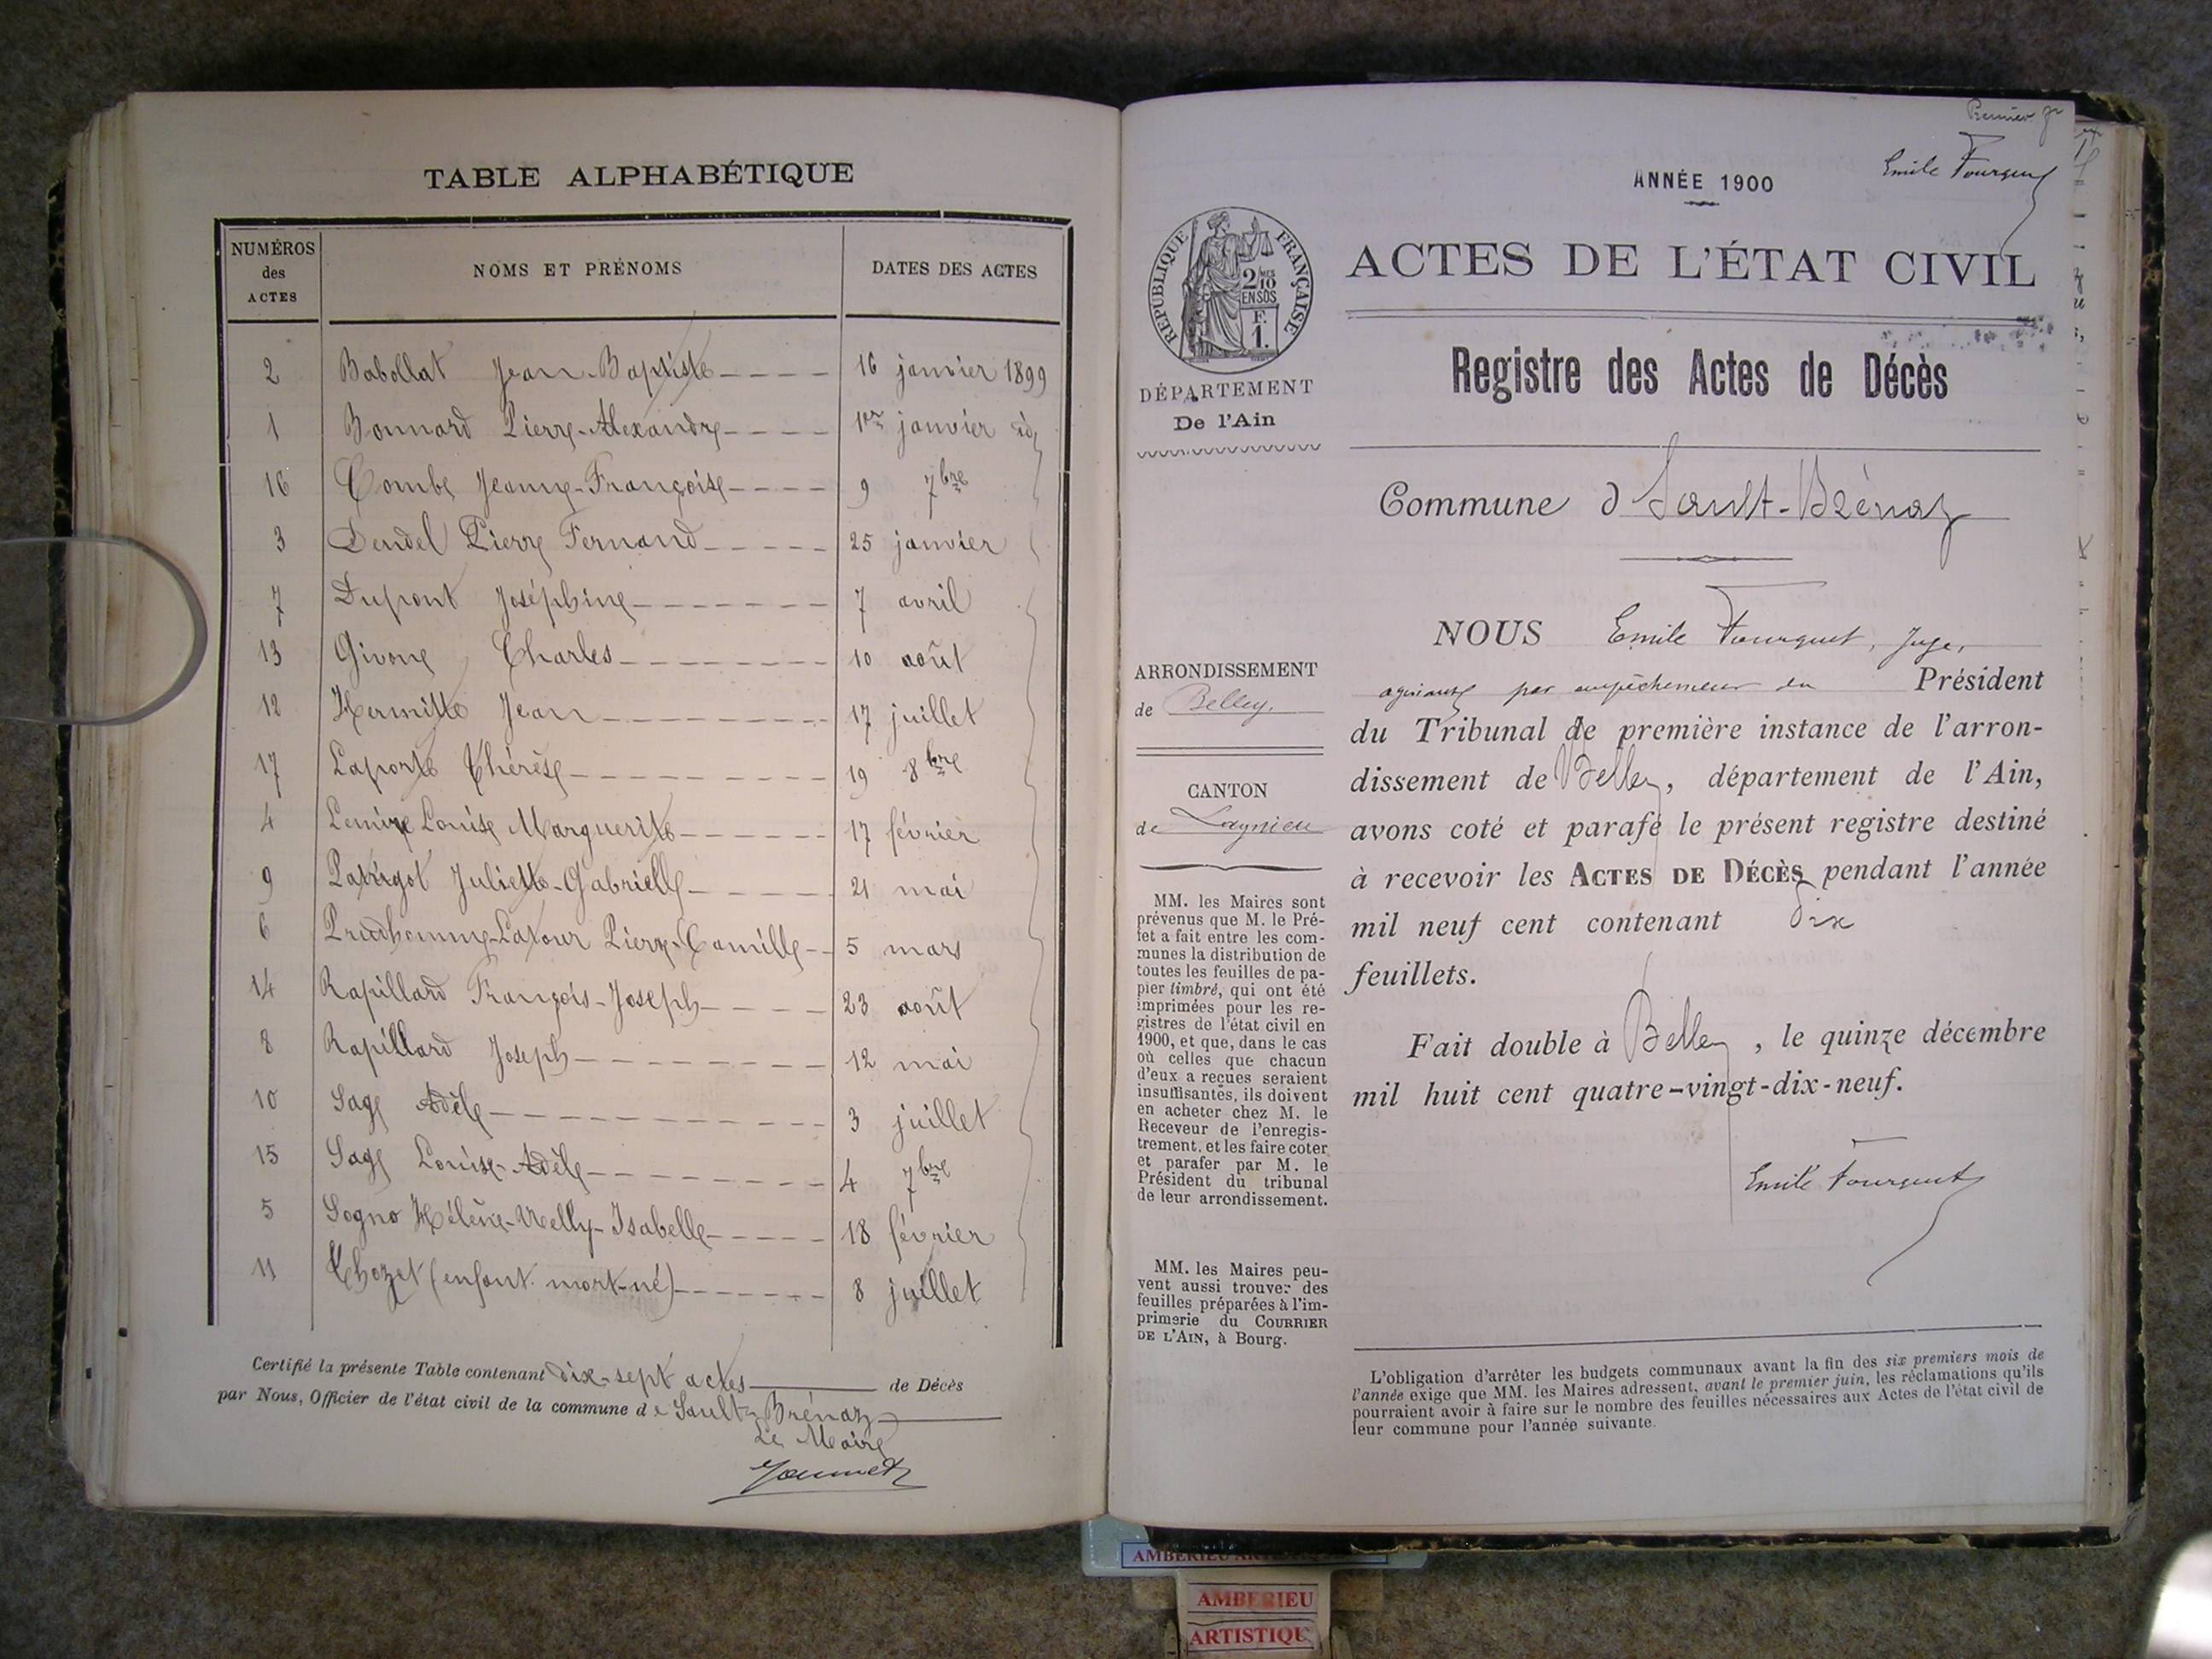 TABLE ALPHABÉTIQUE
NUMÉROS des ACTES NOMS ET PRÉNOMS DATES DES ACTES
2 Babollat Jean-Baptiste 16 janvier 1899
1 Bonnard Pierre-Alexandre 1er janvier id
16 Combe Jeanne-Françoise 9 7bre
3 Dendel Pierre Fernand 25 janvier
7 Dupont Joséphine 7 avril
13 Givone Charles 10 août
12 Hermitte Jean 17 juillet
17 Laporte Thérèse 19 8bre
4 Lemire Louise Marguerite 17 février
9 Patrigot Juliette-Gabrielle 21 mai
6 Prudhomme-Latour Pierre-Camille 5 mars
14 Rapillard François-Joseph 23 août
8 Rapillard Joseph 12 mai
10 Sage Adèle 3 juillet
15 Sage Louise-Adèle 4 7bre
5 Sogno Hélène-Nelly-Isabelle 18 février
11 Thozet (enfant mort-né) 8 juillet
Certifié la présente Table contenant dix-sept actes de Décès
par Nous, Officier de l'état civil de la commune de Sault-Brénaz
Le Maire
Premier
Emile Fourquet
ANNÉE 1900
ACTES DE L'ÉTAT CIVIL
RÉPUBLIQUE FRANÇAISE
2/10 MES
EN SUS
F.
1.
DÉPARTEMENT
De l'Ain
Registre des Actes de Décès
Commune d Sault-Brénaz
ARRONDISSEMENT
de Belley.
CANTON
de Lagnieu
MM. les Maires sont
prévenus que M. le Pré-
fet a fait entre les com-
munes la distribution de
toutes les feuilles de pa-
pier timbré, qui ont été
imprimées pour les re-
gistres de l'état civil en
1900, et que, dans le cas
où celles que chacun
d'eux a reçues seraient
insuffisantes, ils doivent
en acheter chez M. le
Receveur de l'enregis-
trement, et les faire coter
et parafer par M. le
Président du tribunal
de leur arrondissement.
MM. les Maires peu-
vent aussi trouver des
feuilles préparées à l'im-
primerie du COURRIER
DE L'AIN, à Bourg.
NOUS Emile Fourquet, Juge,
agissant par empêchement du Président
du Tribunal de première instance de l'arron-
dissement de Belley, département de l'Ain,
avons coté et parafé le présent registre destiné
à recevoir les ACTES DE DÉCÈS pendant l'année
mil neuf cent contenant dix
feuillets.
Fait double à Belley, le quinze décembre
mil huit cent quatre-vingt-dix-neuf.
Emile Fourquet
L'obligation d'arrêter les budgets communaux avant la fin des six premiers mois de
l'année exige que MM. les Maires adressent, avant le premier juin, les réclamations qu'ils
pourraient avoir à faire sur le nombre des feuilles nécessaires aux Actes de l'état civil de
leur commune pour l'année suivante.
AMBERIEU
AMBERIEU
ARTISTIQU